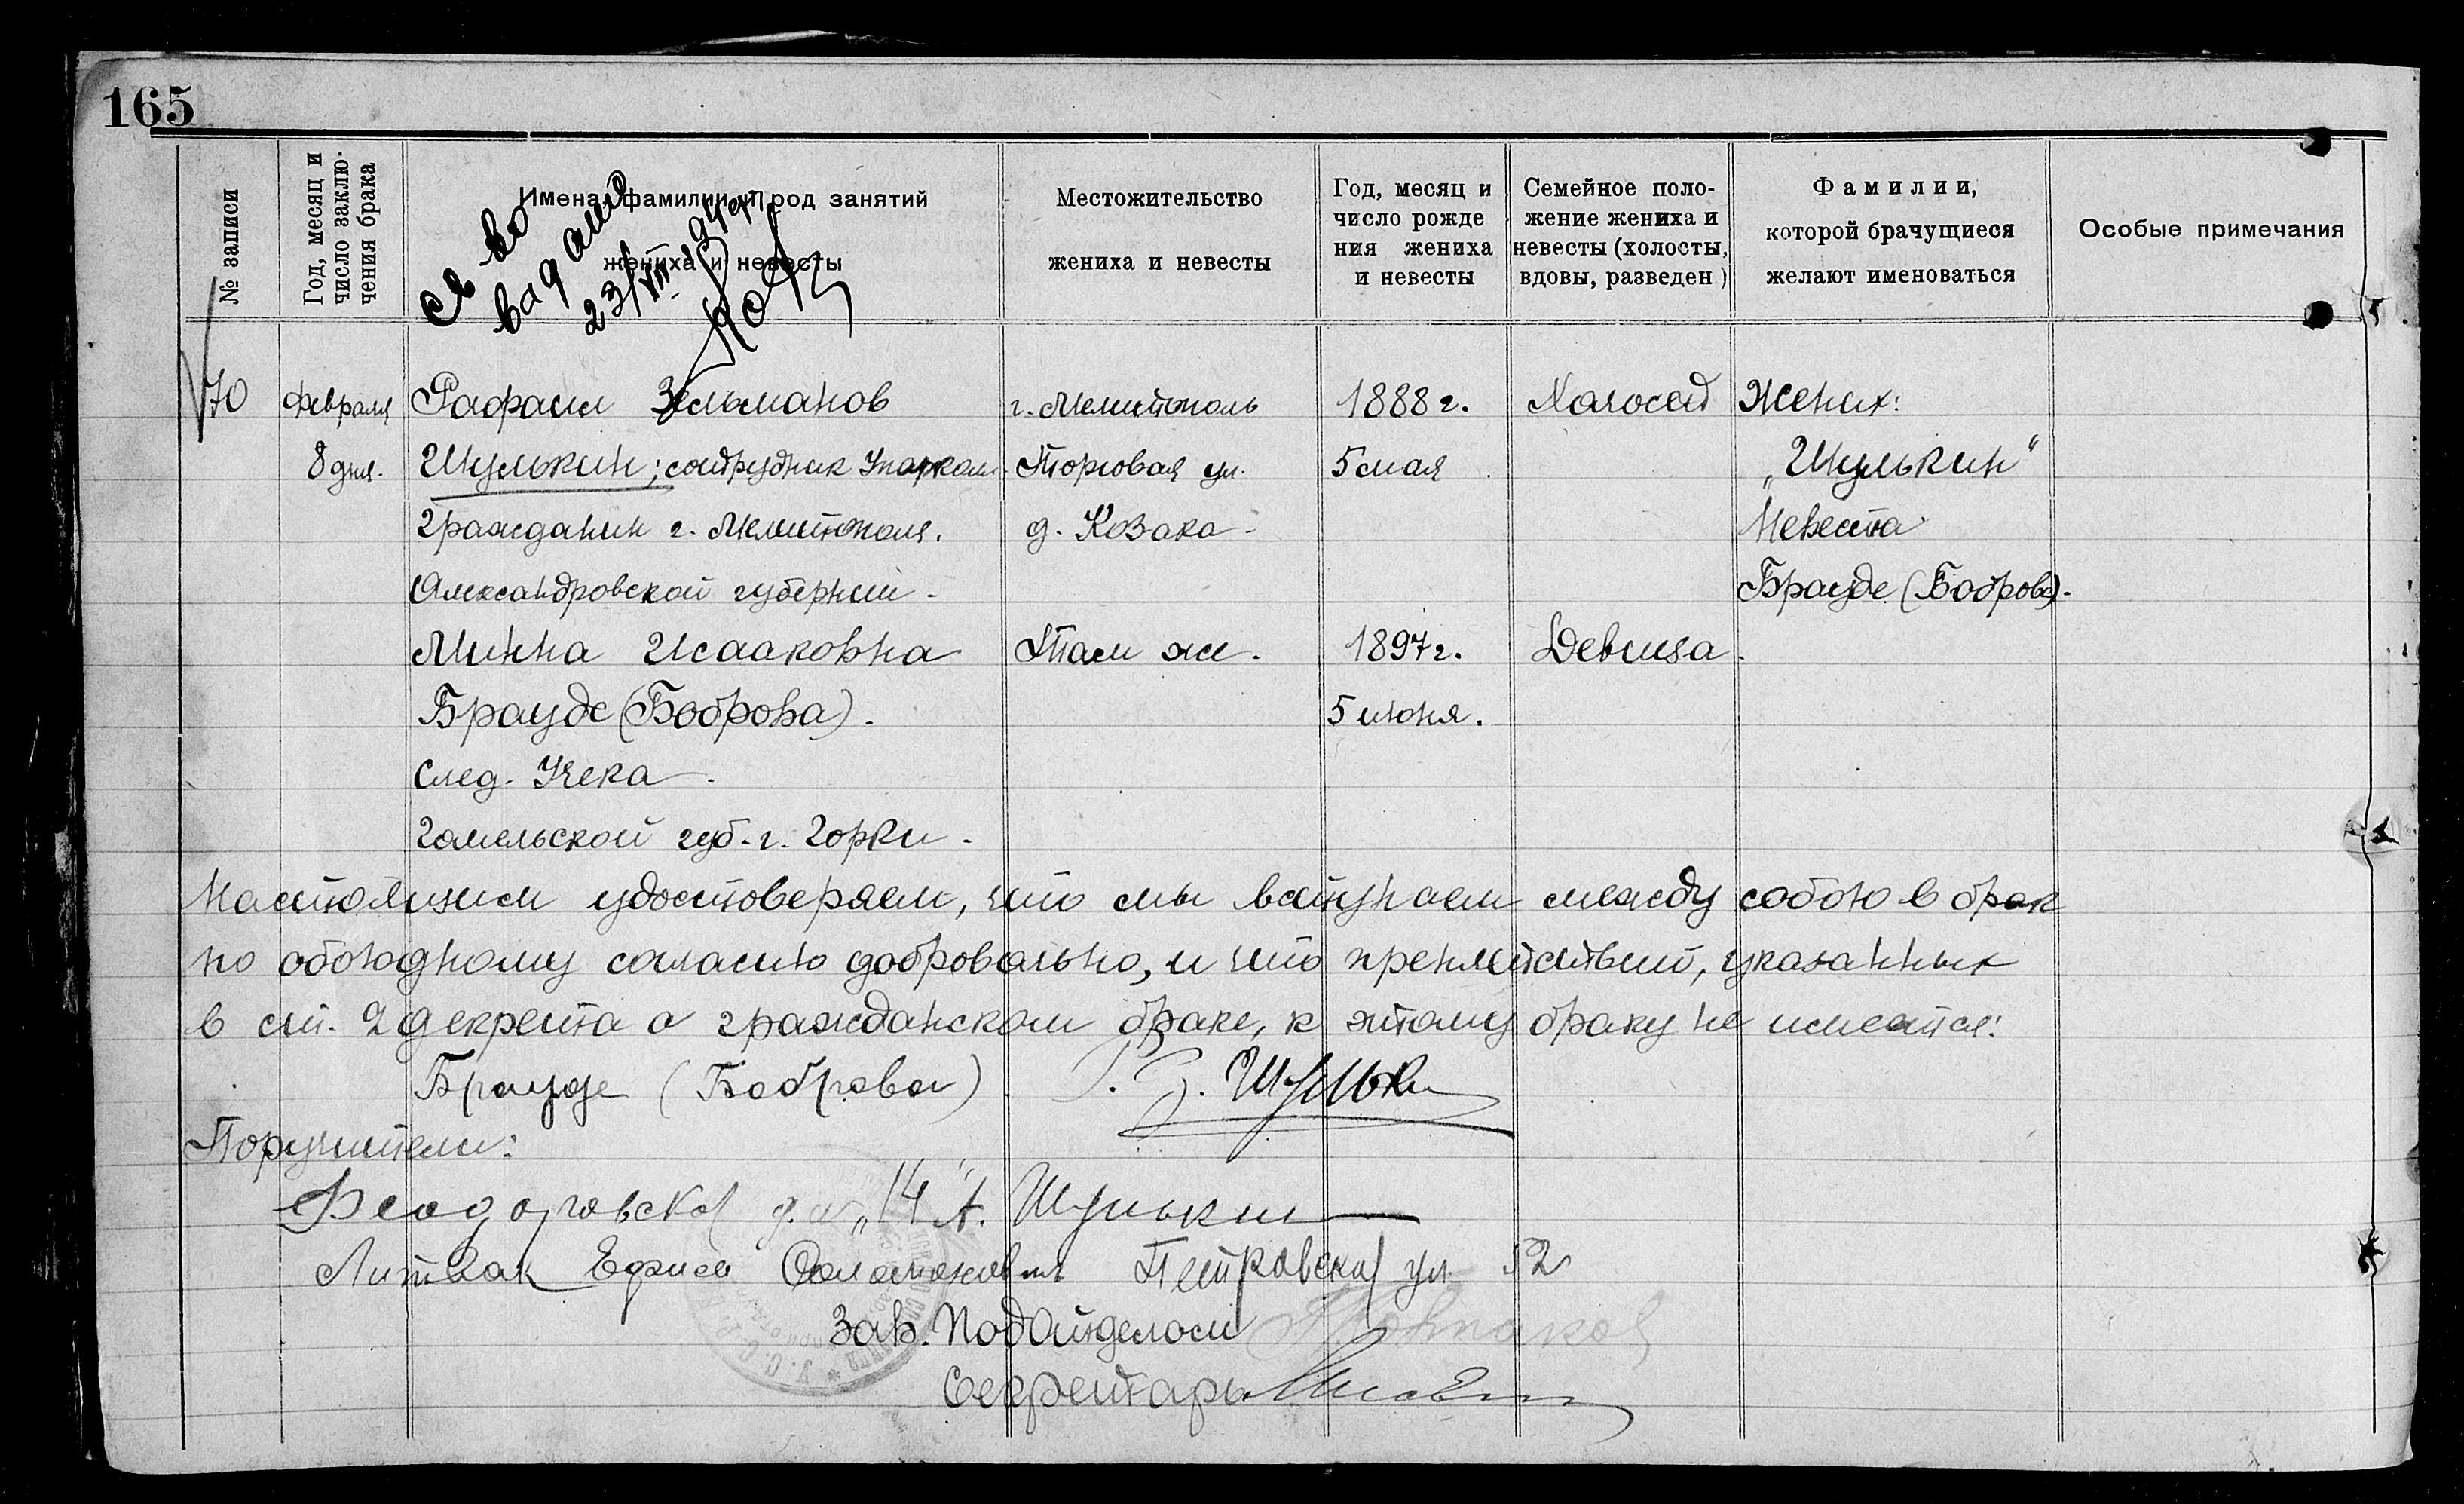 165
№ записи
Год, месяц и
число заклю-
чения брака
Имена, фамилии и род занятий
жениха и невесты
Местожительство
жениха и невесты
Год, месяц и
число рожде
ния жениха
и невесты
Семейное поло-
жение жениха и
невесты (холосты,
вдовы, разведен)
Фамилии,
которой брачущиеся
желают именоваться
Особые примечания
св во
23/VIII
70 февраля Рафаил Зельманов г. Мелитополь 1888 г. Холостой Жених:
8 дня. Шулькин; сотрудник Упарком. Торговая ул. 5 мая „Шулькин“
гражданин г. Мелитополя. д. Козака - Невеста
Александровской губернии - Брауде (Боброва).
Минна Исааковна Там же. 1897 г. Девица.
Брауде (Боброва). 5 июня.
След. Учека.
Гомельской губ. г. Горки -
Настоящим удостоверяем, что мы вступаем между собою в брак
по обоюдному согласию добровольно, и что препятствий, указанных
в ст. 2 декрета о гражданском браке, к этому браку не имеется:
Брауде (Боброва) Р. З. Шульки
Поручители:
Феодоровск „14" А. Шулькин
Литвак Ефим Соломонович Петровская ул. 52
Зав. Подотделом
Секретарь